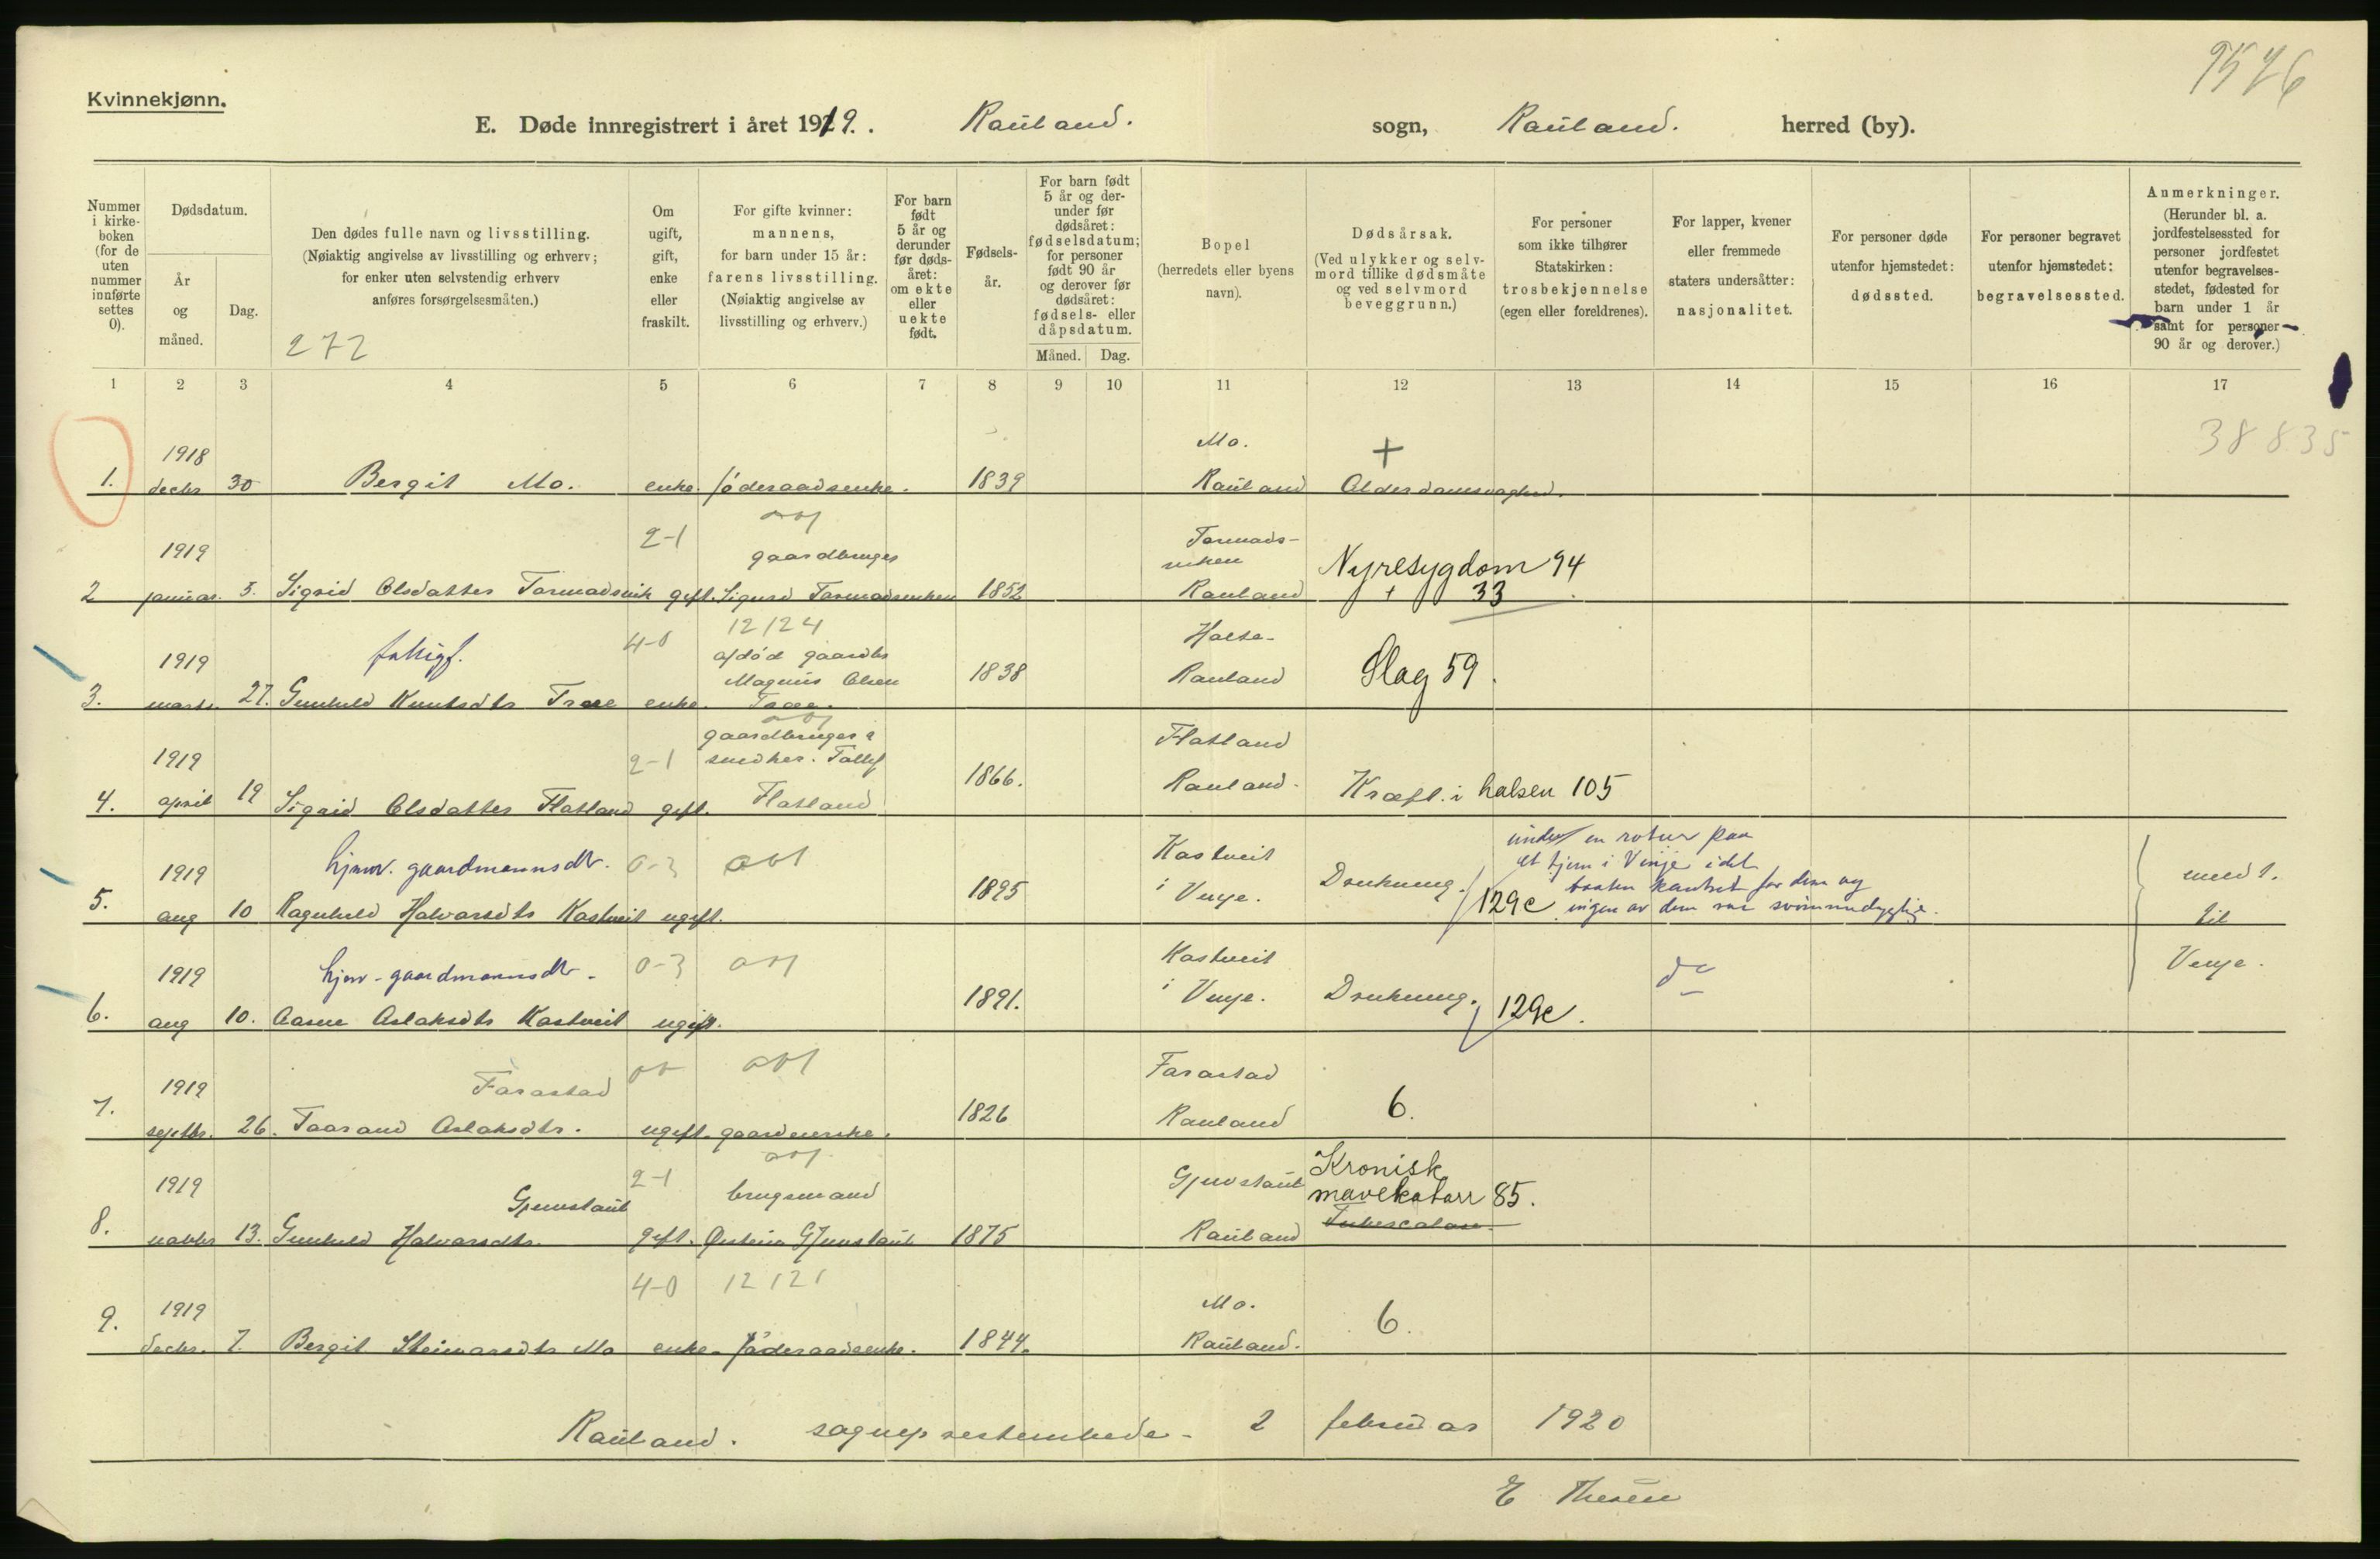 Kvinnekjønn.
E. Døde innregistrert i året 1919. Rauland. sogn, Rauland. herred (by).
Nummer i kirke-boken (for de uten nummer innførte settes 0).
Dødsdatum.
År og måned.
Dag.
Den dødes fulle navn og livsstilling.
(Nøiaktig angivelse av livsstilling og erhverv; for enker uten selvstendig erhverv anføres forsørgelsesmåten.)
272
Om ugift, gift, enke eller fraskilt.
For gifte kvinner: mannens, for barn under 15 år: farens livsstilling.
(Nøiaktig angivelse av livsstilling og erhverv.)
For barn født 5 år og derunder før døds-året: om ekte eller uekte født.
Fødsels-år.
For barn født 5 år og der-under før dødsåret: fødselsdatum; for personer født 90 år og derover før dødsåret: fødsels- eller dåpsdatum.
Måned. Dag.
Bopel (herredets eller byens navn).
Dødsårsak.
(Ved ulykker og selv-mord tillike dødsmåte og ved selvmord beveggrunn.)
For personer som ikke tilhører Statskirken: trosbekjennelse (egen eller foreldrenes).
For lapper, kvener eller fremmede staters undersåtter: nasjonalitet.
For personer døde utenfor hjemstedet: dødssted.
For personer begravet utenfor hjemstedet: begravelsessted.
Anmerkninger.
(Herunder bl. a. jordfestelsessted for personer jordfestet utenfor begravelses-stedet, fødested for barn under 1 år samt for personer 90 år og derover.)
1 2 3 4 5 6 7 8 9 10 11 12 13 14 15 16 17
38835
1918 Mo. +
1. decbr 30 Bergit Mo. enke. føderaadsenke. 1839 Rauland Alderdomssvaghed.
1919 2-1 gaardbruger
2 januar. 5. Sigrid Olsdatter gift. Sigurd 1852 Rauland Nyresygdom 94 + 33
1919 fattigf. 4-0 12124 afdød gaardbr Magnus Olsen
3. marts. 27. Gunhild Knutsdtr Traae enke. Traae. 1838 Rauland Slag 59.
1919 2-1 gaardbruger & Flatland
4. april 19 Sigrid Olsdatter Flatland gift. Flatland 1866. Rauland. Kræft. i halsen 105
1919 hjemv. gaardmannsdtr. 0-3 Kastveit
under en rotur paa
et tjern i Vinje idet
baaten kantret for dem og
ingen av dem var svømmedygtig.
5. aug 10 Ragnhild Halvorsdtr Kastveit ugift. 1895 i Vinje. Drukning. 129e
1919 hjemv. gaardmannsdtr. 0-3 Kastveit do
6. aug 10. Aasne Aslaksdtr Kastveit ugift. 1891. i Vinje. Drukning. 129e.
til
Vinje.
1919 Farastad Farastad
7. septbr. 26. Taarand Aslaksdtr. ugift. gaardeierske. 1826 Rauland 6.
1919 2-1 brugsmand Kronisk mavekatarr 85.
8. novbr 13. Gunhild Halvorsdtr. gift. 1875 Rauland Tuberculose.
1919 4-0 12121 Mo.
9. decbr. 7. Bergit Steinarsdtr Mo enke. føderaadsenke. 1844. Rauland. 6.
Rauland. sogneprestembede - 2 februar 1920